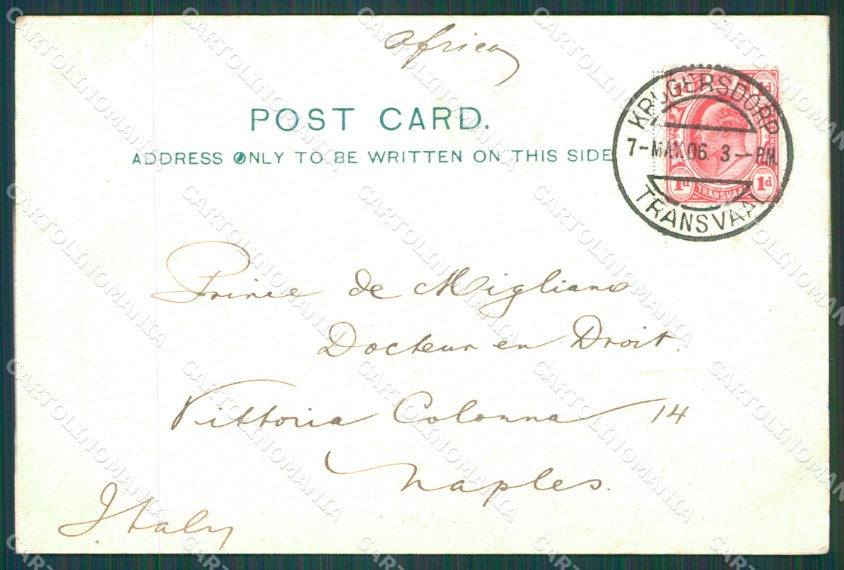 Africa
POST CARD.
ADDRESS ONLY TO BE WRITTEN ON THIS SIDE
KRUGERSDORP
7-MAY.06. 3-PM.
TRANSVAAL
1d TRANSVAAL 1d
Prince de Migliano
Docteur en Droit.
Vittoria Colonna 14
Naples.
Italy
CARTOLINOMANIA